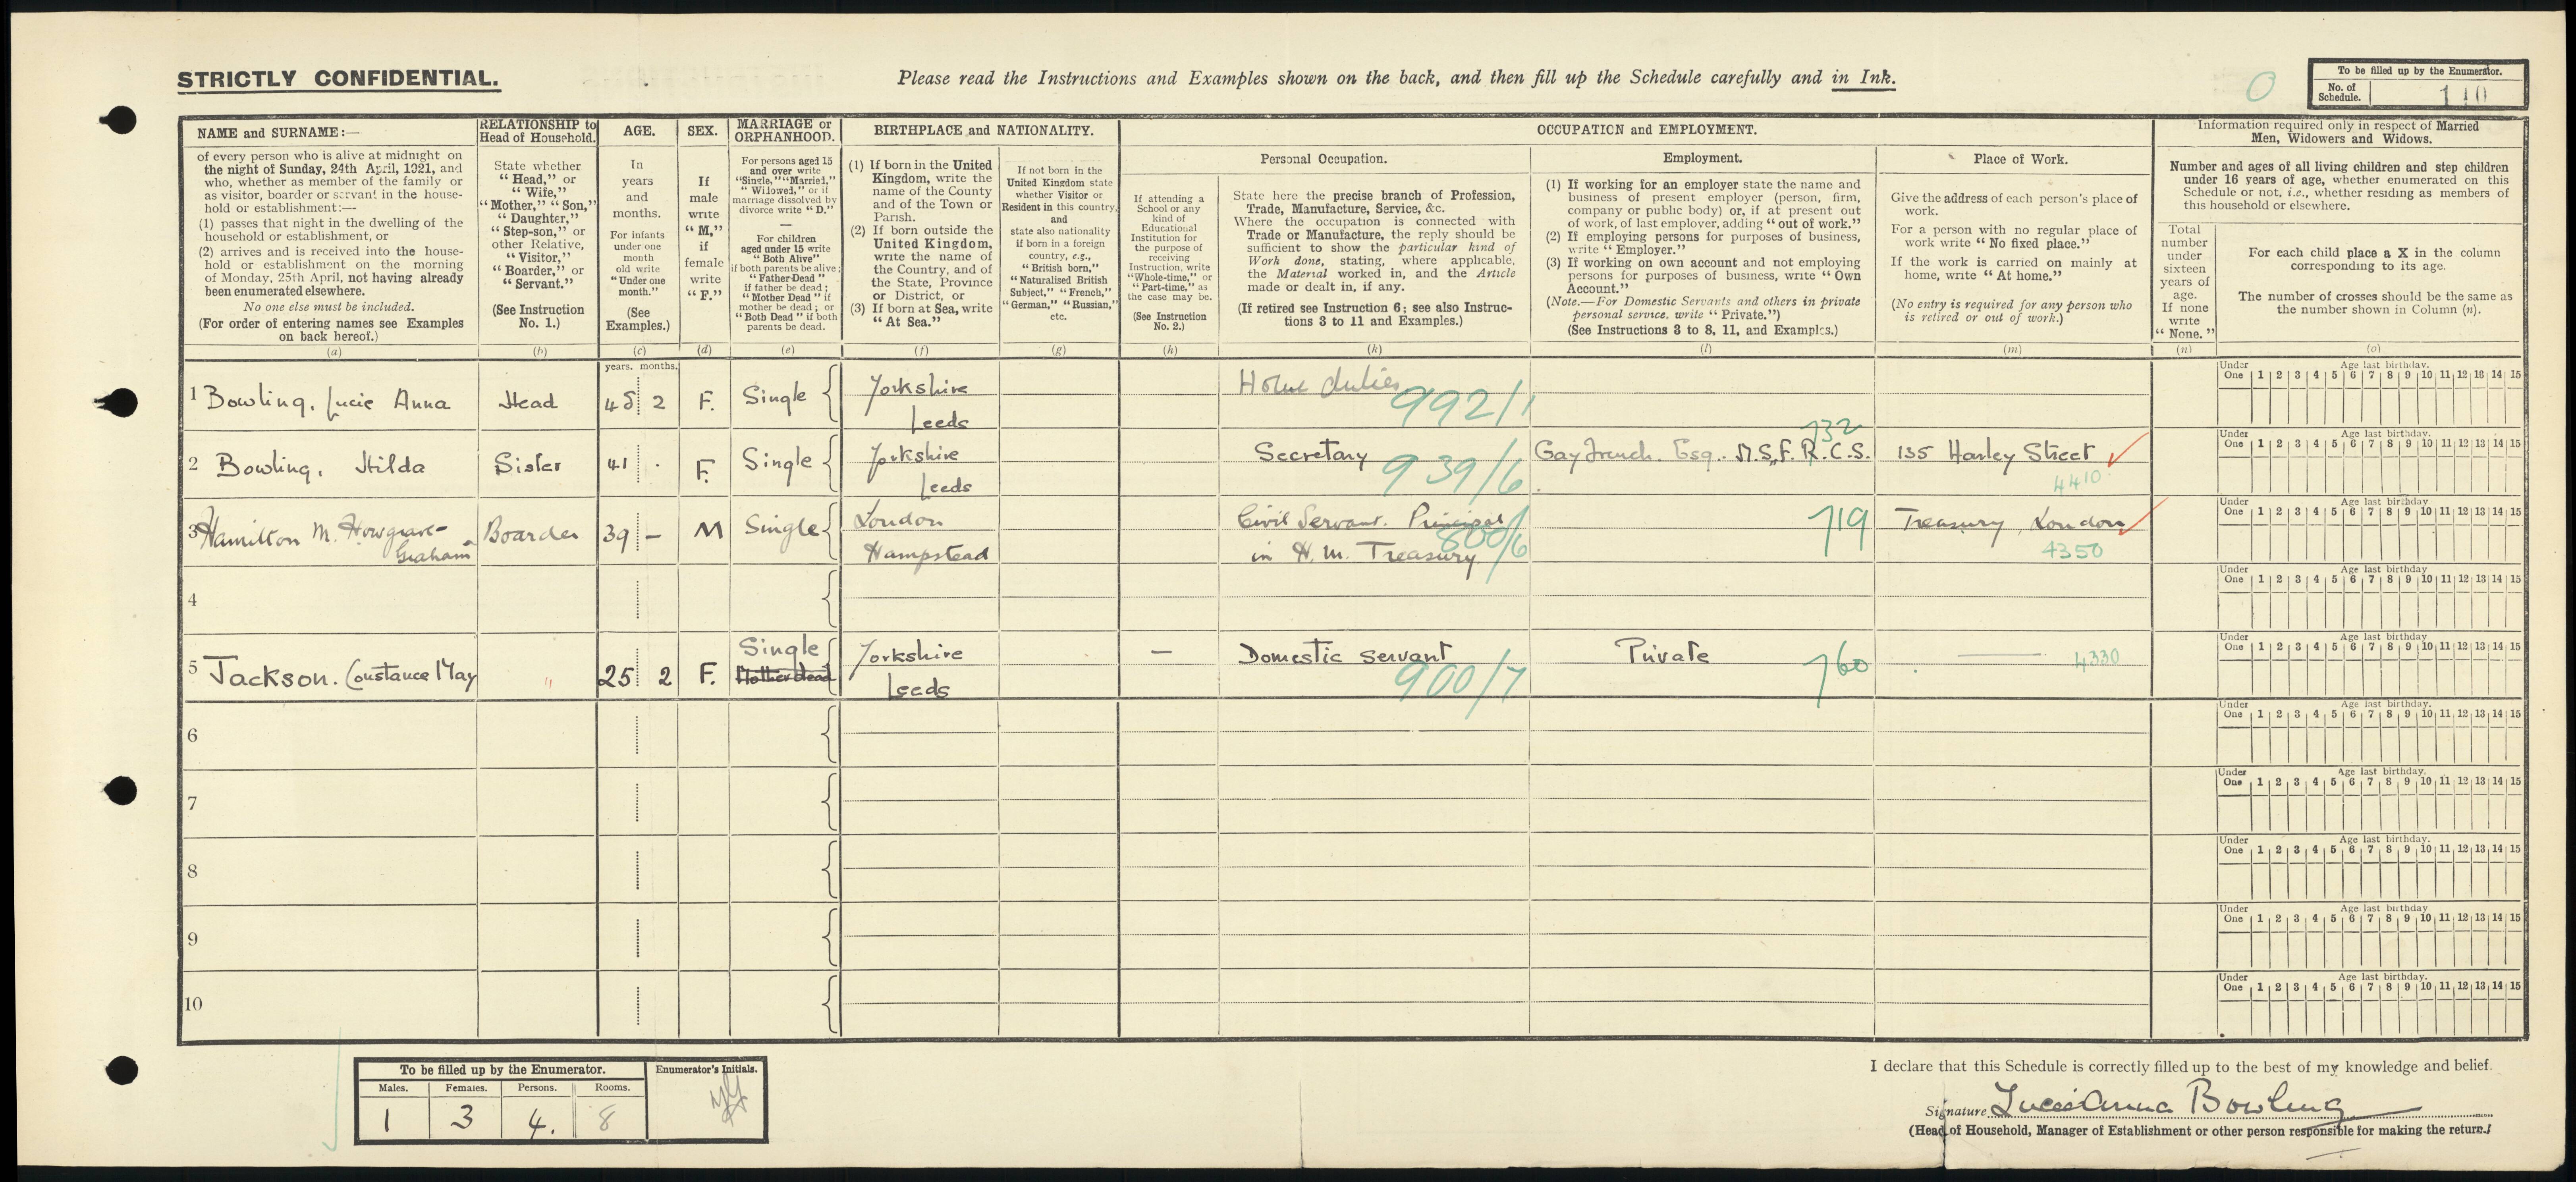 STRICTLY CONFIDENTIAL.
Please read the Instructions and Examples shown on the back, and then fill up the Schedule carefully and in Ink.
To be filled up by the Enumerator.
No. of Schedule. 110
NAME and SURNAME:—
of every person who is alive at midnight on
the night of Sunday, 24th April, 1921, and
who, whether as member of the family or
as visitor, boarder or servant in the house-
hold or establishment:—
(1) passes that night in the dwelling of the
household or establishment, or
(2) arrives and is received into the house-
hold or establishment on the morning
of Monday, 25th April, not having already
been enumerated elsewhere.
No one else must be included.
(For order of entering names see Examples
on back hereof.)
(a)
RELATIONSHIP to
Head of Household.
State whether
"Head," or
"Wife,"
"Mother," "Son,"
"Daughter,"
"Step-son," or
other Relative,
"Visitor,"
"Boarder," or
"Servant."
(See Instruction
No. 1.)
(b)
AGE.
In
years
and
months.
For infants
under one
month
old write
"Under one
month."
(See
Examples.)
(c)
SEX.
If
male
write
"M,"
if
female
write
"F."
(d)
MARRIAGE or
ORPHANHOOD.
For persons aged 15
and over write
"Single," "Married,"
"Widowed," or if
marriage dissolved by
divorce write "D."
—
For children
aged under 15 write
"Both Alive"
if both parents be alive;
"Father Dead"
if father be dead;
"Mother Dead" if
mother be dead; or
"Both Dead" if both
parents be dead.
(e)
BIRTHPLACE and NATIONALITY.
(1) If born in the United
Kingdom, write the
name of the County
and of the Town or
Parish.
(2) If born outside the
United Kingdom,
write the name of
the Country, and of
the State, Province
or District, or
(3) If born at Sea, write
"At Sea."
(f)
If not born in the
United Kingdom state
whether Visitor or
Resident in this country,
and
state also nationality
if born in a foreign
country, e.g.,
"British born,"
"Naturalised British
Subject," "French,"
"German," "Russian,"
etc.
(g)
OCCUPATION and EMPLOYMENT.
If attending a
School or any
kind of
Educational
Institution for
the purpose of
receiving
Instruction, write
"Whole-time," or
"Part-time," as
the case may be.
(See Instruction
No. 2.)
(h)
Personal Occupation.
State here the precise branch of Profession,
Trade, Manufacture, Service, &c.
Where the occupation is connected with
Trade or Manufacture, the reply should be
sufficient to show the particular kind of
Work done, stating, where applicable,
the Material worked in, and the Article
made or dealt in, if any.
(If retired see Instruction 6; see also Instruc-
tions 3 to 11 and Examples.)
(k)
Employment.
(1) If working for an employer state the name and
business of present employer (person, firm,
company or public body) or, if at present out
of work, of last employer, adding "out of work."
(2) If employing persons for purposes of business,
write "Employer."
(3) If working on own account and not employing
persons for purposes of business, write "Own
Account."
(Note.—For Domestic Servants and others in private
personal service, write "Private.")
(See Instructions 3 to 8, 11, and Examples.)
(l)
Place of Work.
Give the address of each person's place of
work.
For a person with no regular place of
work write "No fixed place."
If the work is carried on mainly at
home, write "At home."
(No entry is required for any person who
is retired or out of work.)
(m)
Information required only in respect of Married
Men, Widowers and Widows.
Number and ages of all living children and step children
under 16 years of age, whether enumerated on this
Schedule or not, i.e., whether residing as members of
this household or elsewhere.
Total
number
under
sixteen
years of
age.
If none
write
"None."
(n)
For each child place a X in the column
corresponding to its age.
The number of crosses should be the same as
the number shown in Column (n).
(o)
years. months.
1 Bowling. Lucie Anna Head 48 2 F. Single Yorkshire Leeds Home duties 992/1
Under One Age last birthday. 1 2 3 4 5 6 7 8 9 10 11 12 13 14 15
2 Bowling. Hilda Sister 41 . F. Single Yorkshire Leeds Secretary 939/6 Gay French. Esq. M.S,F.R.C.S. 732 135 Harley Street 4410
Under One Age last birthday. 1 2 3 4 5 6 7 8 9 10 11 12 13 14 15
3 Hamilton M. Howgrave-Graham Boarder 39 — M Single London Hampstead Civil Servant. Principal in H.M. Treasury 800/6 719 Treasury, London 4350
Under One Age last birthday 1 2 3 4 5 6 7 8 9 10 11 12 13 14 15
4
Under One Age last birthday 1 2 3 4 5 6 7 8 9 10 11 12 13 14 15
5 Jackson. Constance May " 25 2 F. Single Mother dead Yorkshire Leeds — Domestic servant 900/7 Private 760 — 4330
Under One Age last birthday 1 2 3 4 5 6 7 8 9 10 11 12 13 14 15
6
Under One Age last birthday. 1 2 3 4 5 6 7 8 9 10 11 12 13 14 15
7
Under One Age last birthday. 1 2 3 4 5 6 7 8 9 10 11 12 13 14 15
8
Under One Age last birthday. 1 2 3 4 5 6 7 8 9 10 11 12 13 14 15
9
Under One Age last birthday 1 2 3 4 5 6 7 8 9 10 11 12 13 14 15
10
Under One Age last birthday. 1 2 3 4 5 6 7 8 9 10 11 12 13 14 15
To be filled up by the Enumerator.
Males. Females. Persons. Rooms.
1 3 4. 8
Enumerator's Initials.
I declare that this Schedule is correctly filled up to the best of my knowledge and belief.
Signature Lucie Anna Bowling
(Head of Household, Manager of Establishment or other person responsible for making the return.)